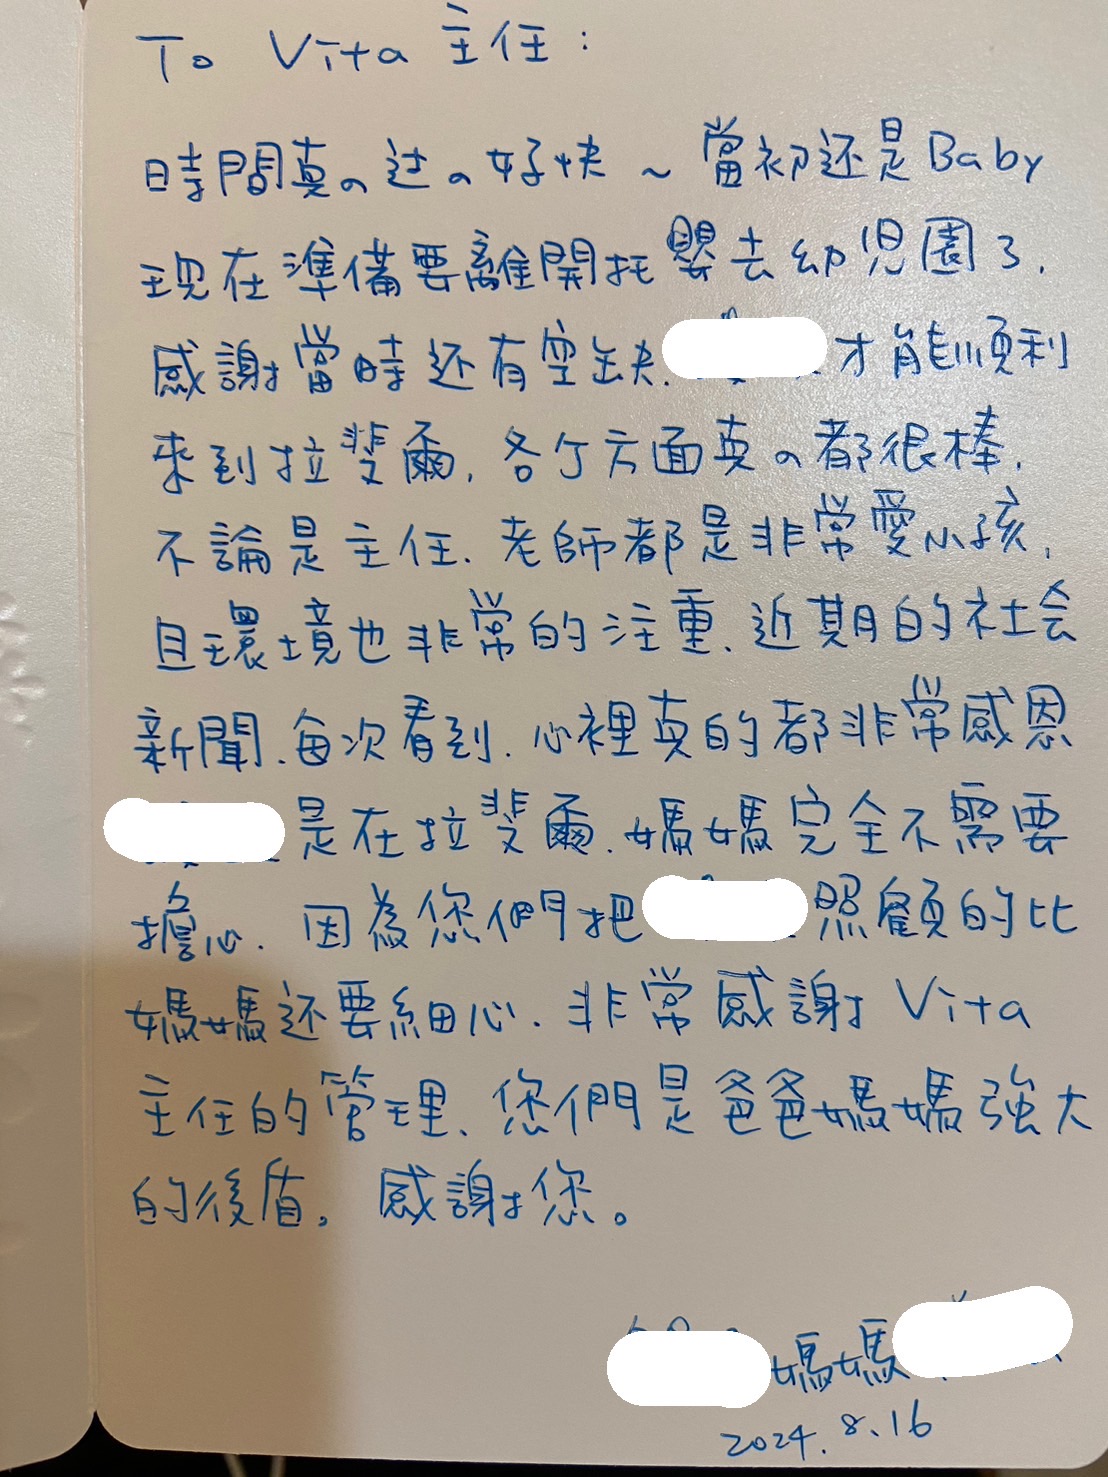 To Vita 主任：
時間真の过の好快～當初还是Baby
現在準備要離開托嬰去幼児園了.
感謝當時还有空缺.才能順利
來到拉斐爾,各个方面真の都很棒,
不論是主任.老師都是非常愛小孩,
且環境也非常的注重.近期的社会
新聞.每次看到.心裡真的都非常感恩
是在拉斐爾.媽媽完全不需要
擔心.因為您們把照顧的比
媽媽还要細心.非常感謝Vita
主任的管理、您們是爸爸媽媽強大
的後盾。感謝您。
媽媽
2024.8.16